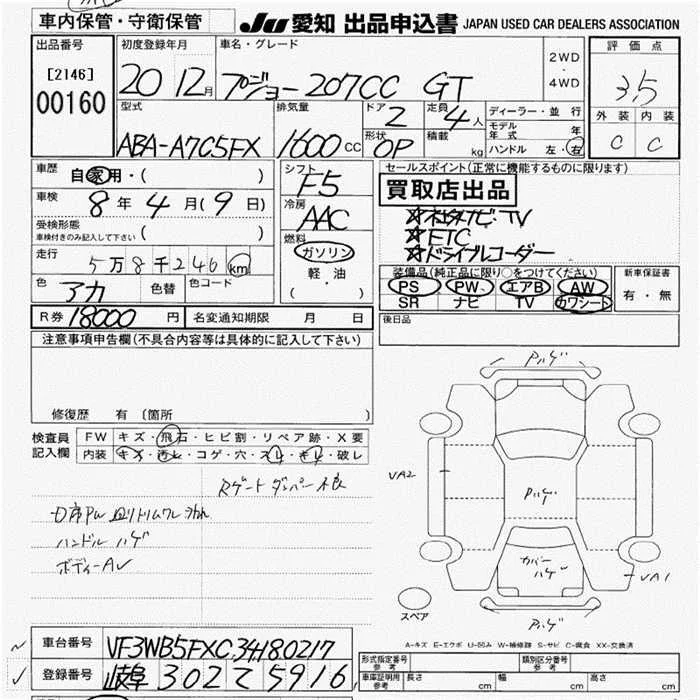 車内保管・守衛保管
JU 愛知 出品申込書 JAPAN USED CAR DEALERS ASSOCIATION
出品番号
[2146]
00160
初度登録年月
20 12月
車名・グレード
プジョー 207CC GT
2WD
・
4WD
評価点
3.5
外装 内装
C C
型式
ABA-A7C5FX
排気量
1600 CC
ドア
2
形状
OP
定員
4人
積載
kg
ディーラー・並行
モデル年式 年
ハンドル 左・右
車歴
自家用・( )
車検
8年4月(9日)
受検形態
車検付きのみ記入して下さい ( )
走行
5万8千246km
色
アカ
色替
色コード
シフト
F5
冷房
AAC
燃料
ガソリン
軽・油
( ・ )
セールスポイント(正常に機能するものに限ります)
買取店出品
☆社外ナビ・TV
☆ETC
☆ドライブレコーダー
装備品(純正品に限り○をつけてください)
PS PW エアB AW
SR ナビ TV カワシート
新車保証書
有・無
R券 18000円
名変通知期限 月 日
後日品
注意事項申告欄(不具合内容等は具体的に記入して下さい)
修復歴 有 〔箇所 〕
検査員
記入欄
FW キズ・飛石・ヒビ割・リペア跡・X要
内装 キズ・汚レ・コゲ・穴・スレ・キレ・破レ
Rゲートダンパー不良
ハンドル ハゲ
ボディーAU
Pハゲ
VA2
Pハゲ
カバー
ハゲ
VA1
Pハゲ
スペア
A-キズ E-エクボ U-凹み W-補修跡 S-サビ C-腐食 XX-交換済
車台番号
VF3WB5FXC34180217
登録番号
岐阜302て5916
形式指定番号
参考
類別区分番号
参考
車庫証明用
参考
長さ cm 幅 cm 高さ cm